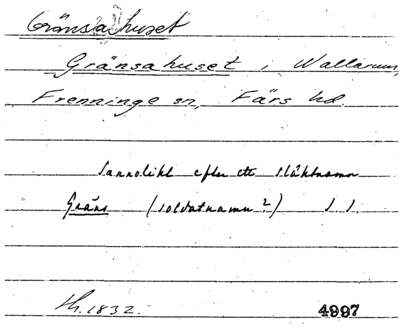 Gränsahuset
Gränsahuset i Wallarum,
Frenninge sn, Färs hd.
Sannolikt efter ett släktnamn
Gräns (soldatnamn?)
Lh. 1832. 4997